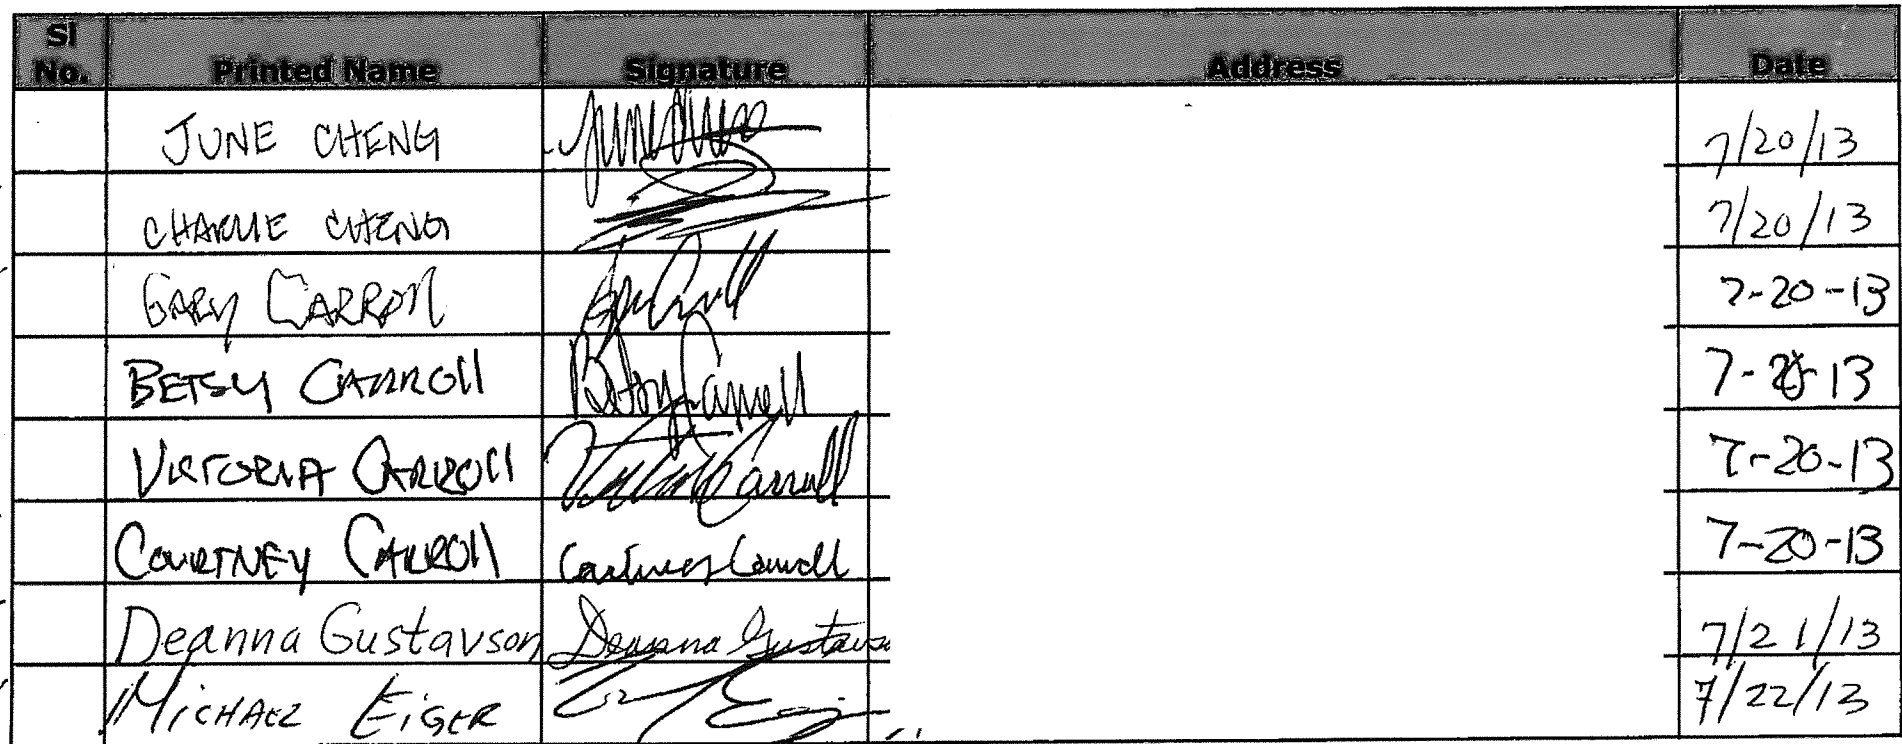 Sl No. Printed Name Signature Address Date
JUNE CHENG 7/20/13
CHARLIE CHENG 7/20/13
GARY CARROll Carroll 7-20-13
BETSY CARROll Betsy Carroll 7-20-13
VICTORIA CARROll Victoria Carroll 7-20-13
COURTNEY CARROll Courtney Carroll 7-20-13
Deanna Gustavson Deanna Gustavso 7/21/13
MICHAEL EIGER 7/22/13